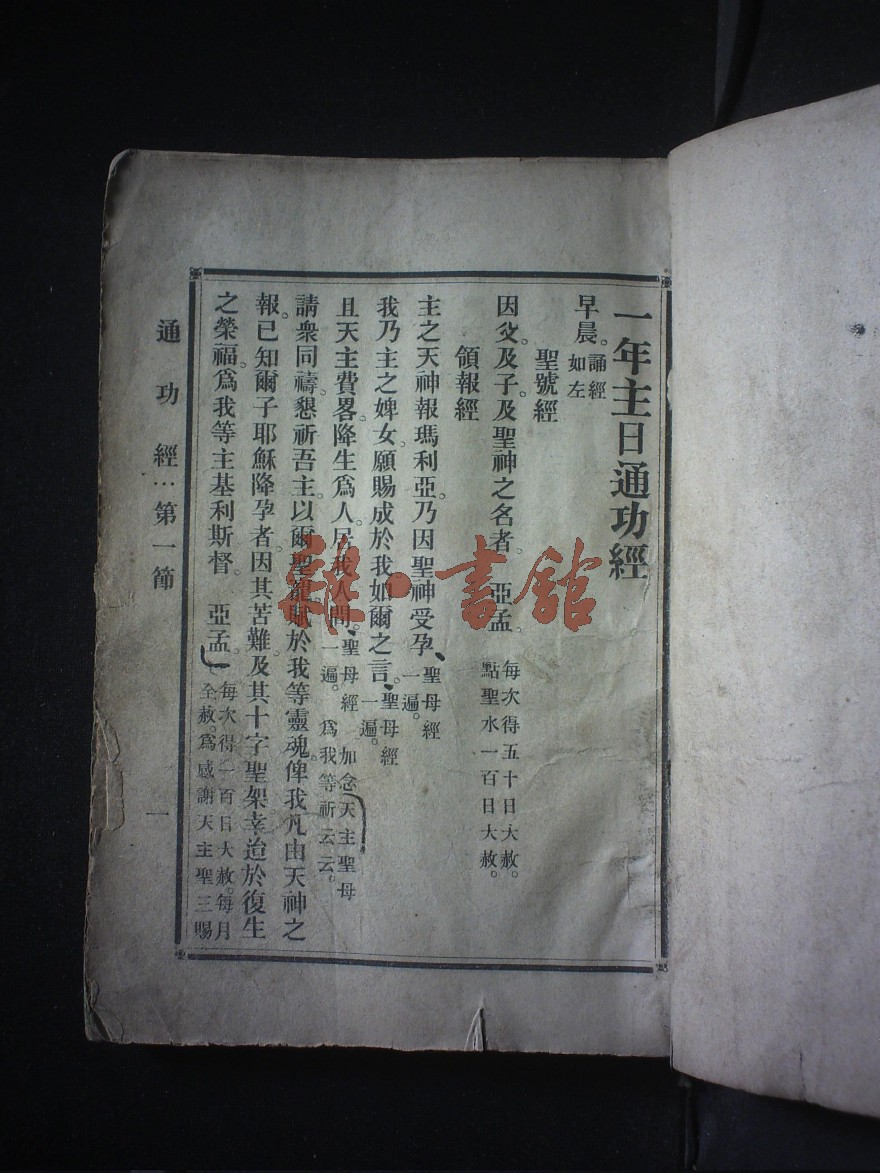 一年主日通功經
早晨。誦經如左
聖號經
因父及子。及聖神之名者。亞孟。每次得五十日大赦。點聖水一百日大赦。
領報經
主之天神報瑪利亞。乃因聖神受孕、聖母經一遍。
我乃主之婢女。願賜成於我。如爾之言。、聖母經一遍。
且天主費畧。降生爲人。居我人間。、聖母經一遍。加念天主聖母爲我等祈云云。
請衆同禱。懇祈吾主。以爾聖寵。賦於我等靈魂。俾我凡由天神之
報。已知爾子耶穌降孕者。因其苦難。及其十字聖架。幸迨於復生
之榮福。爲我等主基利斯督。亞孟。每次得一百日大赦。每月全赦。爲感謝天主聖三賜
通功經…第一節
一
雜·書館